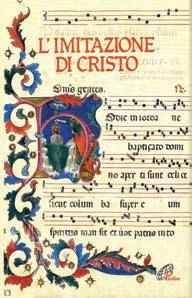 L'IMITAZIONE
DI CRISTO
Omnes gentes.
odie in iorda ne
baptizato domi
no aper ti sunt celi et
sicut colum ba super e um
spiritus man sit et vox patris into
Paoline